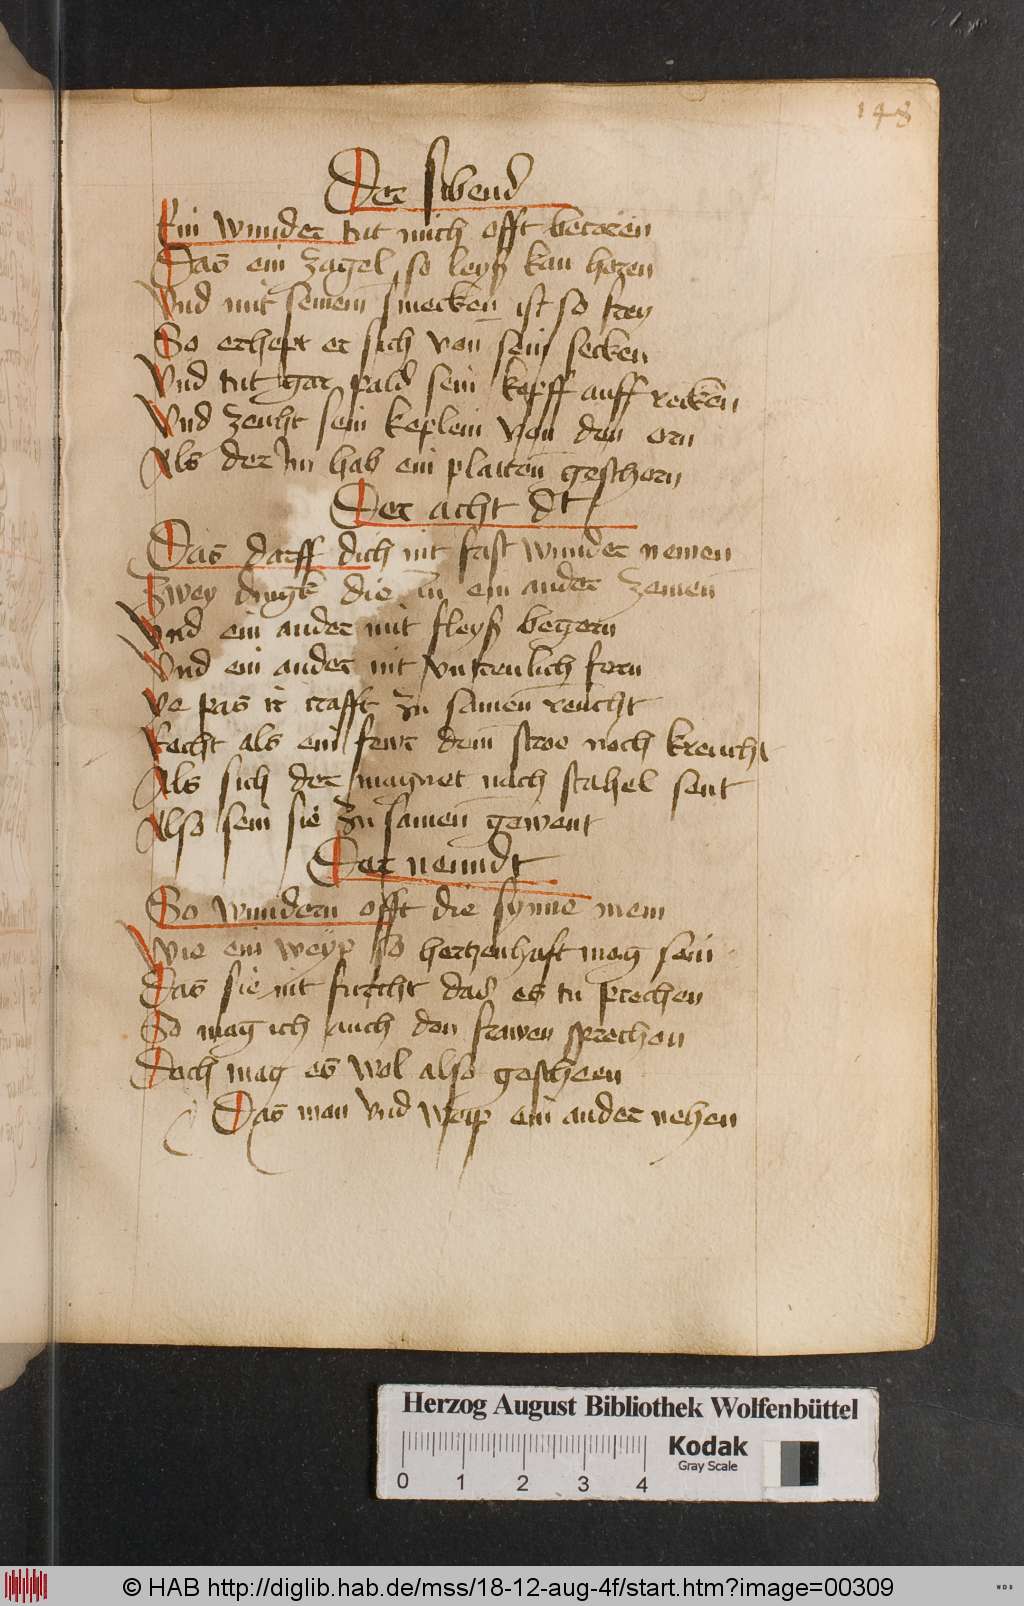 148
Der sibend
Ein wunder tut mich offt betoren
Das ein zagel so leyß kan horen
Vnd mit seinem smecken ist so frey
So erhept er sich von sein secken
Vnd tut gar pald sein kopff auff recken
Vnd zeuht sein keplein von den orn
Als der Im hab ein platten geschorn
Der acht dt
Das darff dich nit fast wunder nemen
Zwey dingk die in ein ander zemen
Vnd ein ander mit fleyß begern
Vnd ein ander nit vntrenlich fern
ye pas ir crafft zu samen reucht
Recht als ein fewr dem stroe noch kreucht
Als sich der magnet nach stahel sent
Also sein sie zu samen gewent
Der neundt
So wundern offt die synne mein
Wie ein weyp so hertzenhaft mog sein
Das sie nit furcht das es tu prechen
So mag ich auch den frawen sprechen
Doch mag es wol also gescheen
Das man vnd weip ein ander nehen
Herzog August Bibliothek Wolfenbüttel
Kodak
Gray Scale
0 1 2 3 4
© HAB http://diglib.hab.de/mss/18-12-aug-4f/start.htm?image=00309